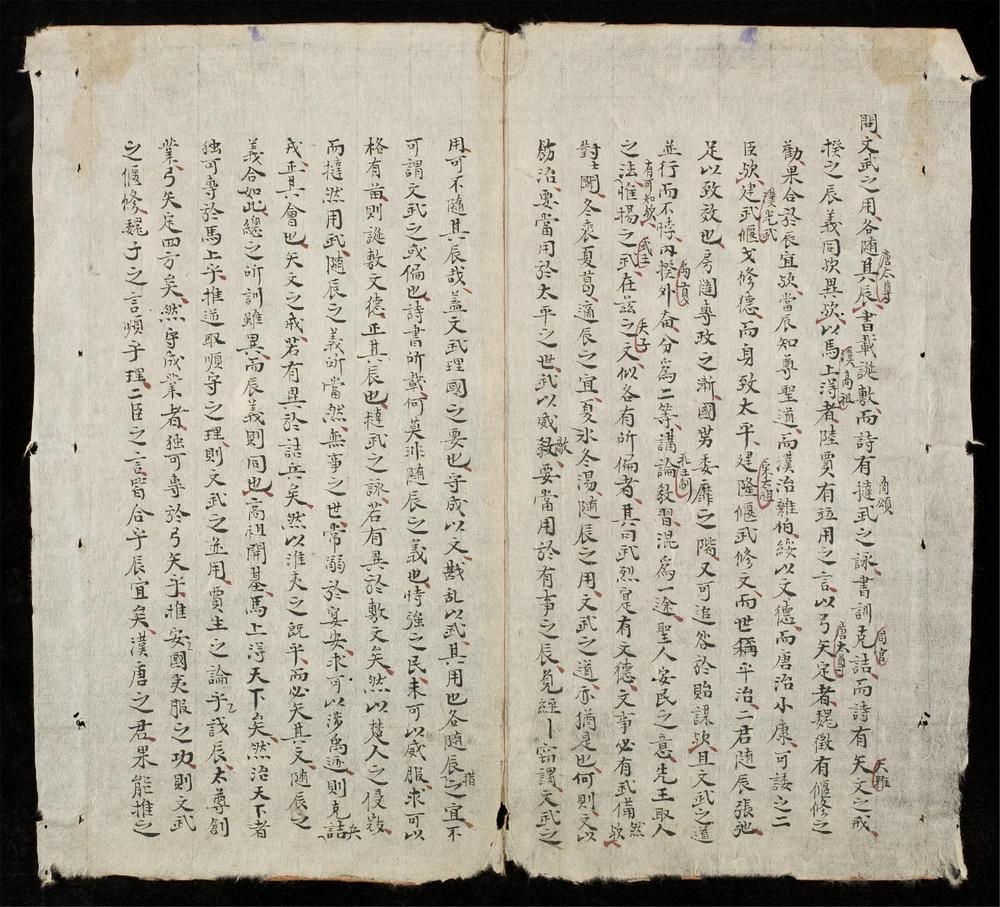 問文武之用各隨其辰書載誕敷而詩有撻武之詠書訓克詰而詩有矢文之戒
揆之辰義同欤異欤以馬上淂者陸賈有並用之言以弓矢定者魏徵有偃修之
勸果合於辰宜欤當辰知尊聖道而漢治雜伯綏以文德而唐治小康可諉之二
臣欤建武偃戈修德而身致太平建隆偃武修文而世稱平治二君隨辰張弛
足以致效也房闥專政之漸國男委靡之階又可追咎於貽謀欤且文武之道
並行而不悖內揆外奋分爲二等講論教習混爲一途聖人安民之意先王取人
之法惟揚之武在兹之文似各有所偏者其曰武烈寔有文德文事必有武備然欤
有可知欤
對士聞冬裘夏葛適辰之宜夏氷冬湯隨辰之用文武之道亦猶是也何則文以
飭治要當用於太平之世武以威敵要當用於有事之辰免經丨窃謂文武之
用可不隨其辰哉盖文武理國之要也守成以文戡乱以武其用也各隨辰之宜不
可謂文武之或偏也詩書所載何莫非隨辰之義也恃強之民未可以威服求可以
格有苗則誕敷文德正其辰也撻武之詠若有異於敷文矣然以楚人之侵
而撻然用武隨辰之義所當然無事之世常溺於宴安求可以涉禹迹則克詰
戎正其會也矢文之戒若有異於詰兵矣然以淮夷之既平而必矢其文隨辰之
義合如此總之所訓雖異而辰義則同也高祖開基馬上淂天下矣然治天下者
独可專於馬上乎推逆取順守之理則文武之並用賈生之論乎誠辰太尊創
業弓矢定四方矣然守成業者独可專於弓矢乎推安國夷服之功則文武
之偃修魏子之言順乎理二臣之言皆合乎辰宜矣漢唐之君果能推之
唐太尊
商頌
周官
大雅
漢高祖
唐太尊
漢光武
宋太祖
禹貢
孔王制
武王
天子